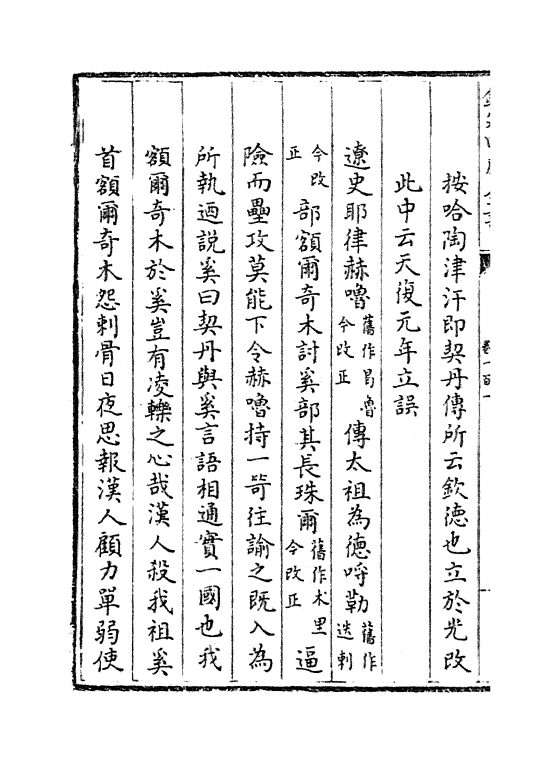 按哈陶津汗即契丹傳所云欽德也立於光改
此中云天復元年立誤
遼史耶律赫嚕舊作曷魯今改正傳太祖為德哷勒舊作迭刺
今改正部額爾奇木討奚部其長珠爾舊作术里今改正逼
險而壘攻莫能下令赫嚕持一笴往諭之既入為
所執迺說奚曰契丹與奚言語相通實一國也我
額爾奇木於奚豈有凌轢之心哉漢人殺我祖奚
首額爾奇木怨刺骨日夜思報漢人顧力單弱使